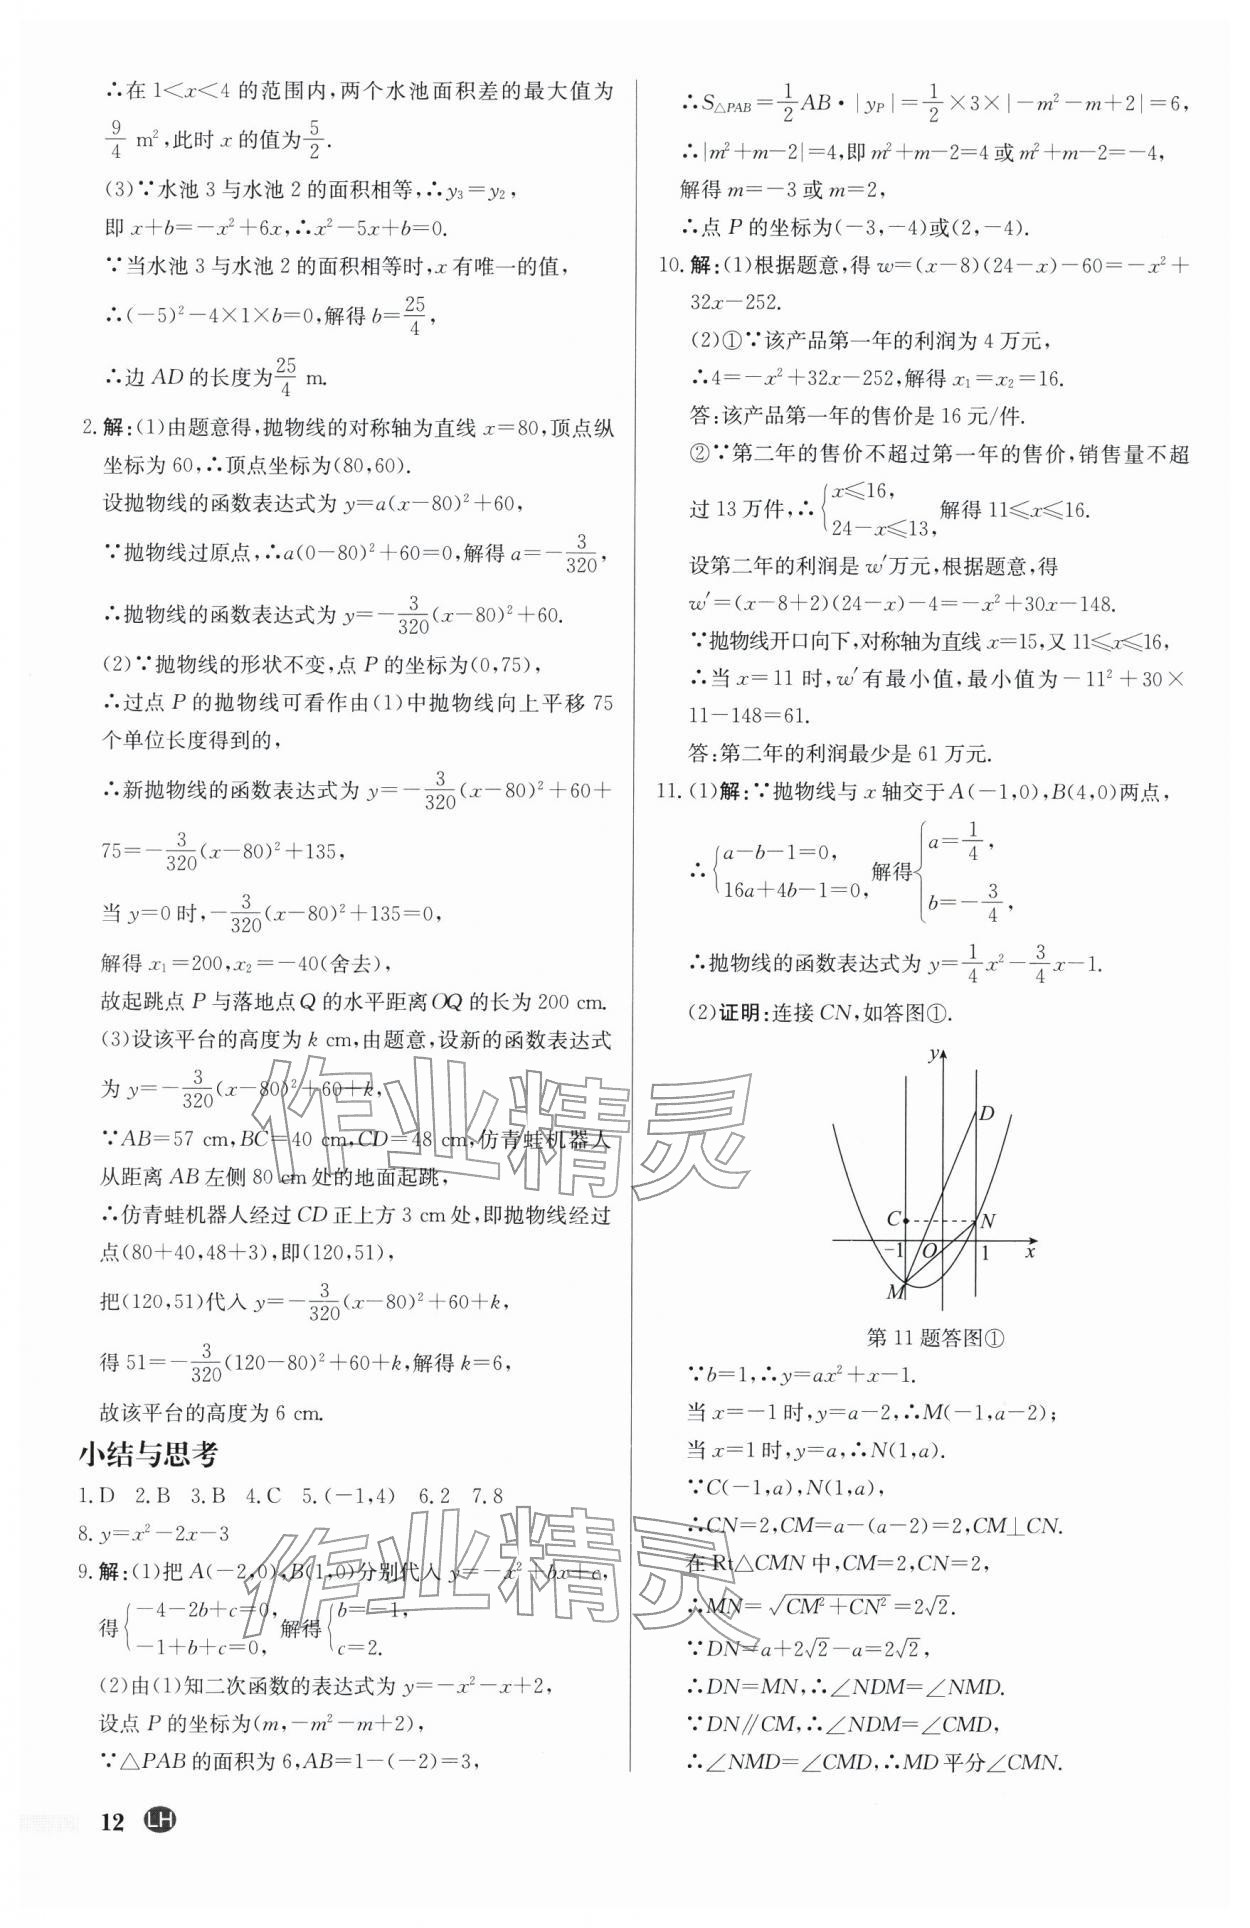 ∴在 1<x<4 的范围内,两个水池面积差的最大值为
9/4 m²,此时 x 的值为5/2.
(3)∵水池 3 与水池 2 的面积相等,∴y₃=y₂,
即 x+b=-x²+6x,∴x²-5x+b=0.
∵当水池 3 与水池 2 的面积相等时,x 有唯一的值,
∴(-5)²-4×1×b=0,解得 b=25/4,
∴边 AD 的长度为25/4 m.
2.解:(1)由题意得,抛物线的对称轴为直线 x=80,顶点纵
坐标为 60,∴顶点坐标为(80,60).
设抛物线的函数表达式为 y=a(x-80)²+60,
∵抛物线过原点,∴a(0-80)²+60=0,解得 a=-3/320,
∴抛物线的函数表达式为 y=-3/320(x-80)²+60.
(2)∵抛物线的形状不变,点 P 的坐标为(0,75),
∴过点 P 的抛物线可看作由(1)中抛物线向上平移 75
个单位长度得到的,
∴新抛物线的函数表达式为 y=-3/320(x-80)²+60+
75=-3/320(x-80)²+135,
当 y=0 时,-3/320(x-80)²+135=0,
解得 x₁=200,x₂=-40(舍去),
故起跳点 P 与落地点 Q 的水平距离 OQ 的长为 200 cm.
(3)设该平台的高度为 k cm,由题意,设新的函数表达式
为 y=-3/320(x-80)²+60+k,
∵AB=57 cm,BC=40 cm,CD=48 cm,仿青蛙机器人
从距离 AB 左侧 80 cm 处的地面起跳,
∴仿青蛙机器人经过 CD 正上方 3 cm 处,即抛物线经过
点(80+40,48+3),即(120,51),
把(120,51)代入 y=-3/320(x-80)²+60+k,
得 51=-3/320(120-80)²+60+k,解得 k=6,
故该平台的高度为 6 cm.
小结与思考
1.D 2.B 3.B 4.C 5.(-1,4) 6.2 7.8
8.y=x²-2x-3
9.解:(1)把 A(-2,0),B(1,0)分别代入 y=-x²+bx+c,
得{-4-2b+c=0, -1+b+c=0, 解得{b=-1, c=2.
(2)由(1)知二次函数的表达式为 y=-x²-x+2,
设点 P 的坐标为(m,-m²-m+2),
∵△PAB 的面积为 6,AB=1-(-2)=3,
12 LH
∴S△PAB=1/2AB·|yP|=1/2×3×|-m²-m+2|=6,
∴|m²+m-2|=4,即 m²+m-2=4 或 m²+m-2=-4,
解得 m=-3 或 m=2,
∴点 P 的坐标为(-3,-4)或(2,-4).
10.解:(1)根据题意,得 w=(x-8)(24-x)-60=-x²+
32x-252.
(2)①∵该产品第一年的利润为 4 万元,
∴4=-x²+32x-252,解得 x₁=x₂=16.
答:该产品第一年的售价是 16 元/件.
②∵第二年的售价不超过第一年的售价,销售量不超
过 13 万件,∴{x≤16, 24-x≤13, 解得 11≤x≤16.
设第二年的利润是 w′万元,根据题意,得
w′=(x-8+2)(24-x)-4=-x²+30x-148.
∵抛物线开口向下,对称轴为直线 x=15,又 11≤x≤16,
∴当 x=11 时,w′有最小值,最小值为-11²+30×
11-148=61.
答:第二年的利润最少是 61 万元.
11.(1)解:∵抛物线与 x 轴交于 A(-1,0),B(4,0)两点,
∴{a-b-1=0, 16a+4b-1=0, 解得{a=1/4, b=-3/4,
∴抛物线的函数表达式为 y=1/4x²-3/4x-1.
(2)证明:连接 CN,如答图①.
y
D
C N
-1 O 1 x
M
第 11 题答图①
∵b=1,∴y=ax²+x-1.
当 x=-1 时,y=a-2,∴M(-1,a-2);
当 x=1 时,y=a,∴N(1,a).
∵C(-1,a),N(1,a),
∴CN=2,CM=a-(a-2)=2,CM⊥CN.
在 Rt△CMN 中,CM=2,CN=2,
∴MN=√(CM²+CN²)=2√2.
∵DN=a+2√2-a=2√2,
∴DN=MN,∴∠NDM=∠NMD.
∵DN∥CM,∴∠NDM=∠CMD,
∴∠NMD=∠CMD,∴MD 平分∠CMN.
作业精灵
作业精灵